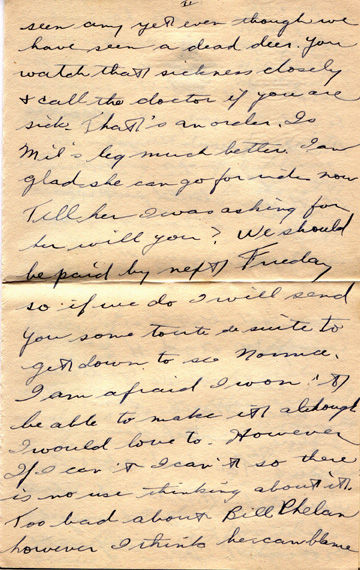 II
seen any yet even though we
have seen a dead deer. You
watch that sickness closely
& call the doctor if you are
sick. That's an order. Is
Mil's leg much better. I am
glad she can go for rides now
Tell her I was asking for
her will you? We should
be paid by next Friday
so if we do I will send
you some toute de suite to
get down to see Norma.
I am afraid I won't
be able to make it although
I would love to. However
If I can't I can't so there
is no use thinking about it.
Too bad about Bill Phelan
however I think he can blame